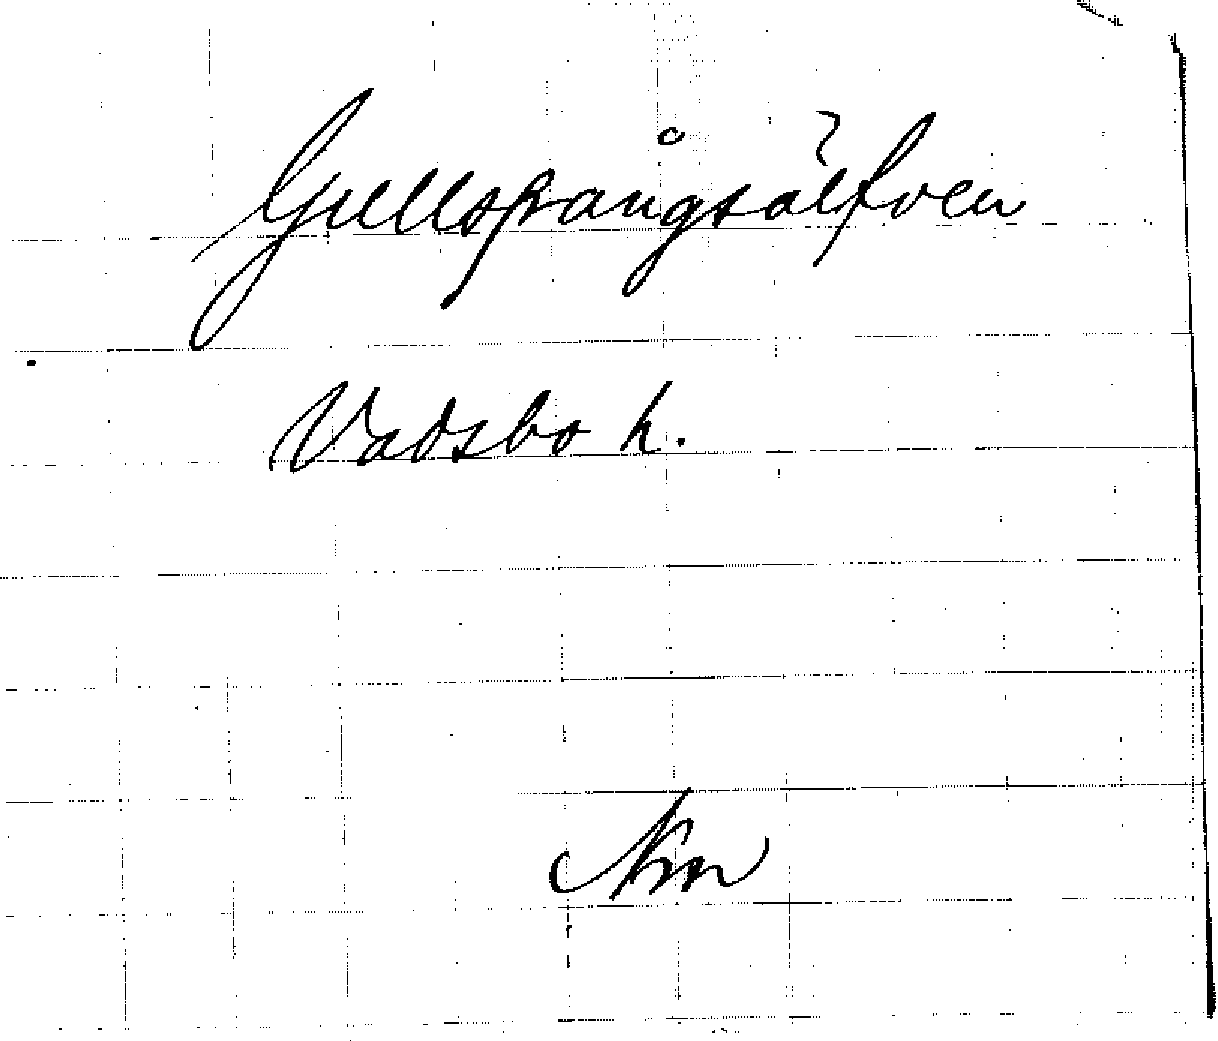 Gullspångsälfven
Vadsbo h.